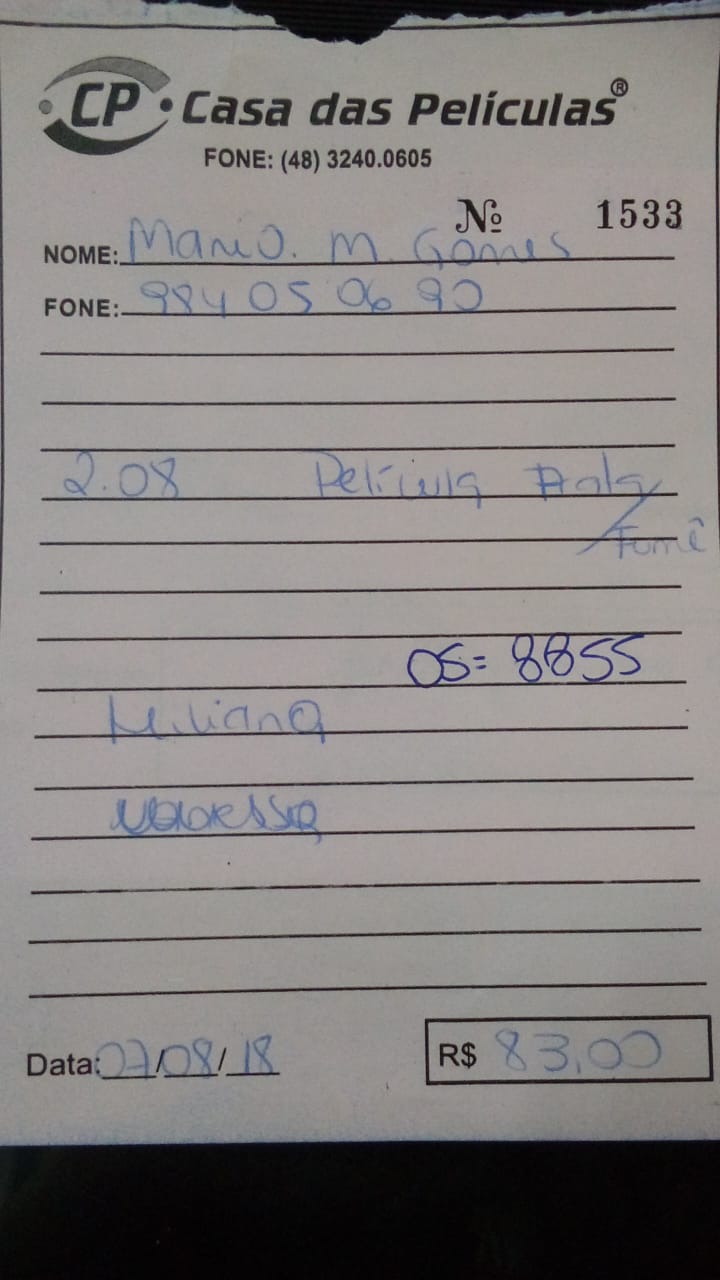 CP • Casa das Películas®
FONE: (48) 3240.0605
Nº 1533
NOME: Mario. M. Gomes
FONE: 984 05 06 90
2.08 Película
Fumê
OS= 8855
Data: 07/08/18
R$ 83,00